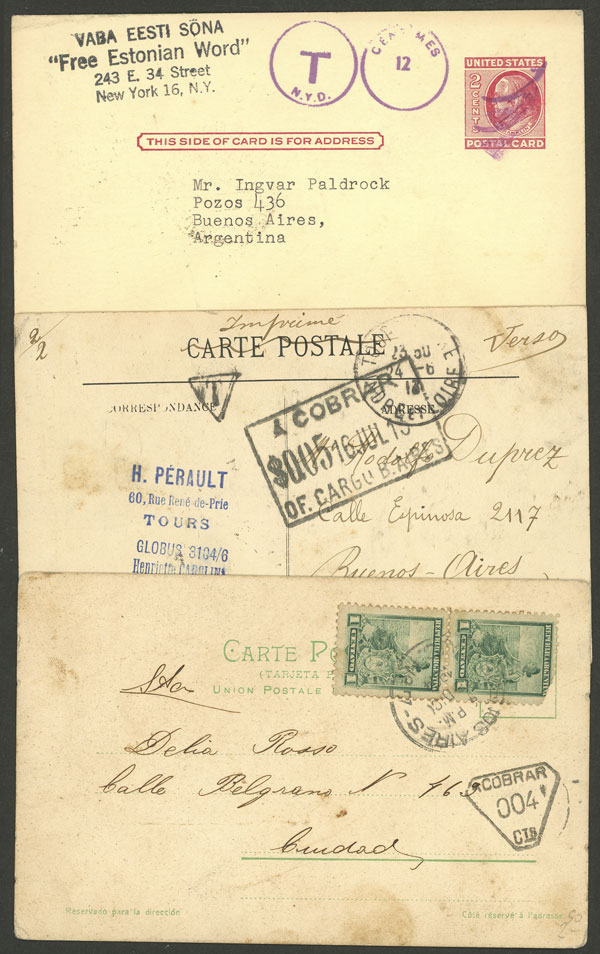 VABA EESTI SÕNA
"Free Estonian Word"
243 E. 34 Street
New York 16, N.Y.
T
N.Y.D.
CENTIMES
12
UNITED STATES
2 CENTS
POSTAL CARD
THIS SIDE OF CARD IS FOR ADDRESS
Mr. Ingvar Paldrock
Pozos 436
Buenos Aires,
Argentina
2/2
Imprimé
Verso
CARTE POSTALE
T
CORRESPONDANCE
ADRESSE
24 -6
A COBRAR
$005 16 JUL 13
OF. CARGO B. AIRES
H. PÉRAULT
60, Rue René-de-Prie
TOURS
GLOBUS 3104/6
Henriette CAROLINA
Duprez
Calle Espinosa 2117
Buenos-Aires
CARTE
(TARJETA
UNION POSTALE
1 REPUBLICA ARGENTINA 1
CENTAVO
1 REPUBLICA ARGENTINA 1
CENTAVO
AIRES
P.M.
Sta
Delia Rosso
Calle Belgrano N 463
Ciudad
A COBRAR
004
CTS
Reservado para la dirección
Côté réservé à l'adresse